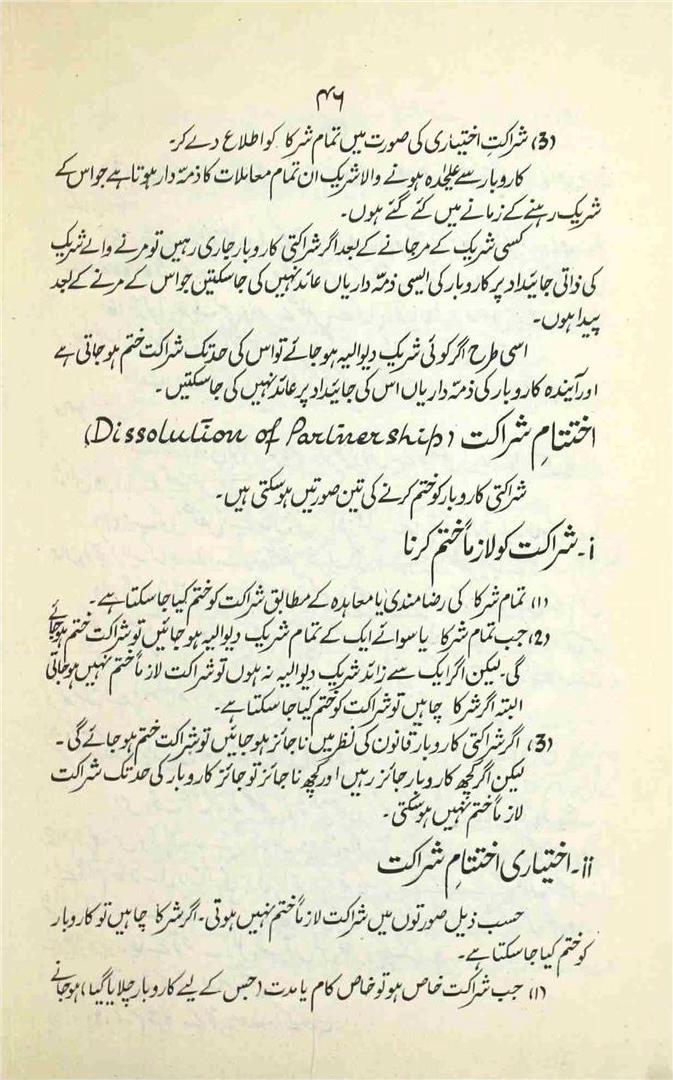 ۴۶
(3) شراکتِ اختیاری کی صورت میں تمام شرکا کو اطلاع دے کر۔
کاروبار سے علیٰحدہ ہونے والا شریک ان تمام معاملات کا ذمّہ دار ہوتا ہے جو اس کے
شریک رہنے کے زمانے میں کئے گئے ہوں۔
کسی شریک کے مرجانے کے بعد اگر شراکتی کاروبار جاری رہیں تو مرنے والے شریک
کی ذاتی جائیداد پر کاروبار کی ایسی ذمّہ داریاں عائد نہیں کی جاسکتیں جو اس کے مرنے کے بعد
پیدا ہوں۔
اسی طرح اگر کوئی شریک دیوالیہ ہوجائے تو اس کی حد تک شراکت ختم ہوجاتی ہے
اور آیندہ کاروبار کی ذمّہ داریاں اس کی جائیداد پر عائد نہیں کی جاسکتیں۔
اختتامِ شراکت (Dissolution of Partnership)
شرکتی کاروبار کو ختم کرنے کی تین صورتیں ہوسکتی ہیں۔
i۔ شراکت کو لازماً ختم کرنا
(۱) تمام شرکا کی رضامندی یا معاہدہ کے مطابق شراکت کو ختم کیا جاسکتا ہے۔
(2) جب تمام شرکا یا سوائے ایک کے تمام شریک دیوالیہ ہوجائیں تو شراکت ختم ہوجائے
گی۔ لیکن اگر ایک سے زائد شریک دیوالیہ نہ ہوں تو شراکت لازماً ختم نہیں ہوجاتی
البتہ اگر شرکا چاہیں تو شراکت کو ختم کیا جاسکتا ہے۔
(3) اگر شراکتی کاروبار قانون کی نظر میں ناجائز ہوجائیں تو شراکت ختم ہوجائے گی۔
لیکن اگر کچھ کاروبار جائز رہیں اور کچھ ناجائز تو جائز کاروبار کی حد تک شراکت
لازماً ختم نہیں ہوسکتی۔
ii۔ اختیاری اختتامِ شراکت
حسب ذیل صورتوں میں شراکت لازماً ختم نہیں ہوتی۔ اگر شرکا چاہیں تو کاروبار
کو ختم کیا جاسکتا ہے۔
(۱) جب شراکت خاص ہو تو خاص کام یا مدت (جس کے لیے کاروبار چلایا گیا) ہوجانے